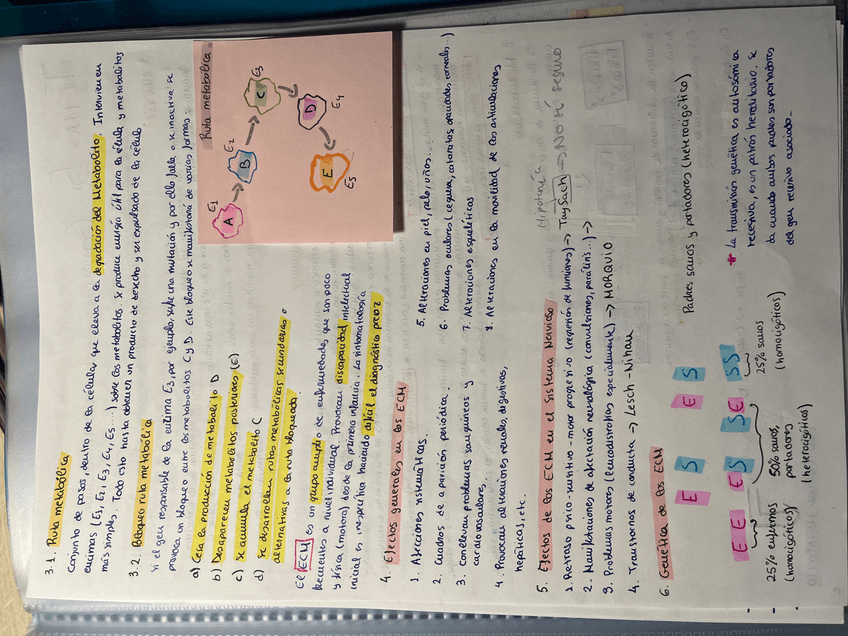 3.1. Ruta metabólica
Conjunto de pasos, dentro de la célula, que lleva a la degradación del Metabolito. Intervienen
enzimas (E1, E2, E3, E4, E5 ...) sobre los metabolitos. Se produce energía útil para la célula y metabolitos
más simples. Todo ello hasta obtener un producto de desecho y ser expulsado de la célula.
3.2. Bloqueo ruta metabólica
Si el gen responsable de la enzima E3, por ejemplo, sufre una mutación y por ello falla o se inactiva se
provoca un bloqueo entre los metabolitos C y D. Este bloqueo se manifestará de varias formas:
a) Cesa la producción de metabolito D
b) Desaparecen metabolitos posteriores (E)
c) Se acumula el metabolito C
d) Se desarrollan rutas metabólicas secundarias o
alternativas a la ruta bloqueada.
Ruta metabólica
E1
A
E2
B
E3
C
D
E4
E
E5
El ECM es un grupo amplio de enfermedades, que son poco
frecuentes a nivel individual. Provocan discapacidad intelectual
y física (motora) desde la primera infancia. La sintomatología
inicial es inespecífica haciendo difícil el diagnóstico precoz
4. Efectos generales en los ECM
1. Afecciones sistemáticas.
2. Cuadros de aparición periódica.
3. Conllevan problemas sanguíneos y
cardiovasculares.
4. Provocan alteraciones renales, digestivas,
hepáticas, etc.
5. Alteraciones en piel, pelo, uñas...
6. Problemas oculares (ceguera, cataratas, opacidades corneales...)
7. Alteraciones esqueléticas
8. Alteraciones en la movilidad de las articulaciones
5. Efectos de los ECM en el Sistema Nervioso
Hipotonía
1. Retraso psico-sensitivo-motor progresivo (regresión de funciones) → TaySach → NO SÉ SEGURO
2. Manifestaciones de afectación neurológica (convulsiones, parálisis...) →
3. Problemas motores (leucodistrofias especialmente) → MORQUIO
4. Transtornos de conducta → Lesch-Nihan
6. Genética de los ECM
E S E S Padres sanos y portadores (heterocigótico)
E E E S S E S S
25% enfermos
(homocigóticos)
50% sanos,
portadores
(heterocigóticos)
25% sanos
(homocigóticos)
* La transmisión genética es autosómica
recesiva, es un patrón hereditario. Se
da cuando ambos padres son portadores
del gen recesivo asociado.